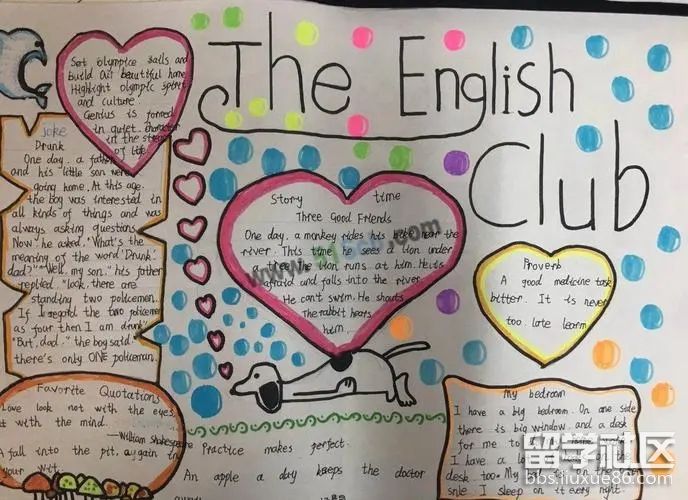 The English
Club
Set olympic sails and
build our beautiful home
Highlight olympic spirit
and culture
Genius is formed
in quiet, character
in the stream
of life
joke
Drunk
One day, a father
and his little son were
going home. At this age.
the boy was interested in
all kinds of things and was
always asking questions.
Now he asked. "What's the
meaning of the word 'Drunk'
dad?" "Well, my son." his father
replied. "look, there are
standing two policemen.
If I regard the two policemen
as four then I am drunk
"But, dad." the boy said
there's only ONE policeman.
Story time
Three Good Friends
One day, a monkey rides his bike near the
river. This time he sees a lion under
a tree. The lion runs at him. He is
afraid and falls into the river.
He can't swim. He shouts
The rabbit hears
him
Proverb
A good medicine task
bitter. It is never
too late learn
Favorite Quotations
Love look not with the eyes
t with the mind.
—William Shakespeare
A fall into the pit, a gain in
your wit.
Practice makes perfect.
An apple a day keeps the doctor
My bedroom
I have a big bedroom. On one side
there is big window. and a desk
for me to
I have a
desk. too. My on the
I sleep on it every night.
www.
留学社区
bbs.liuxue86.com